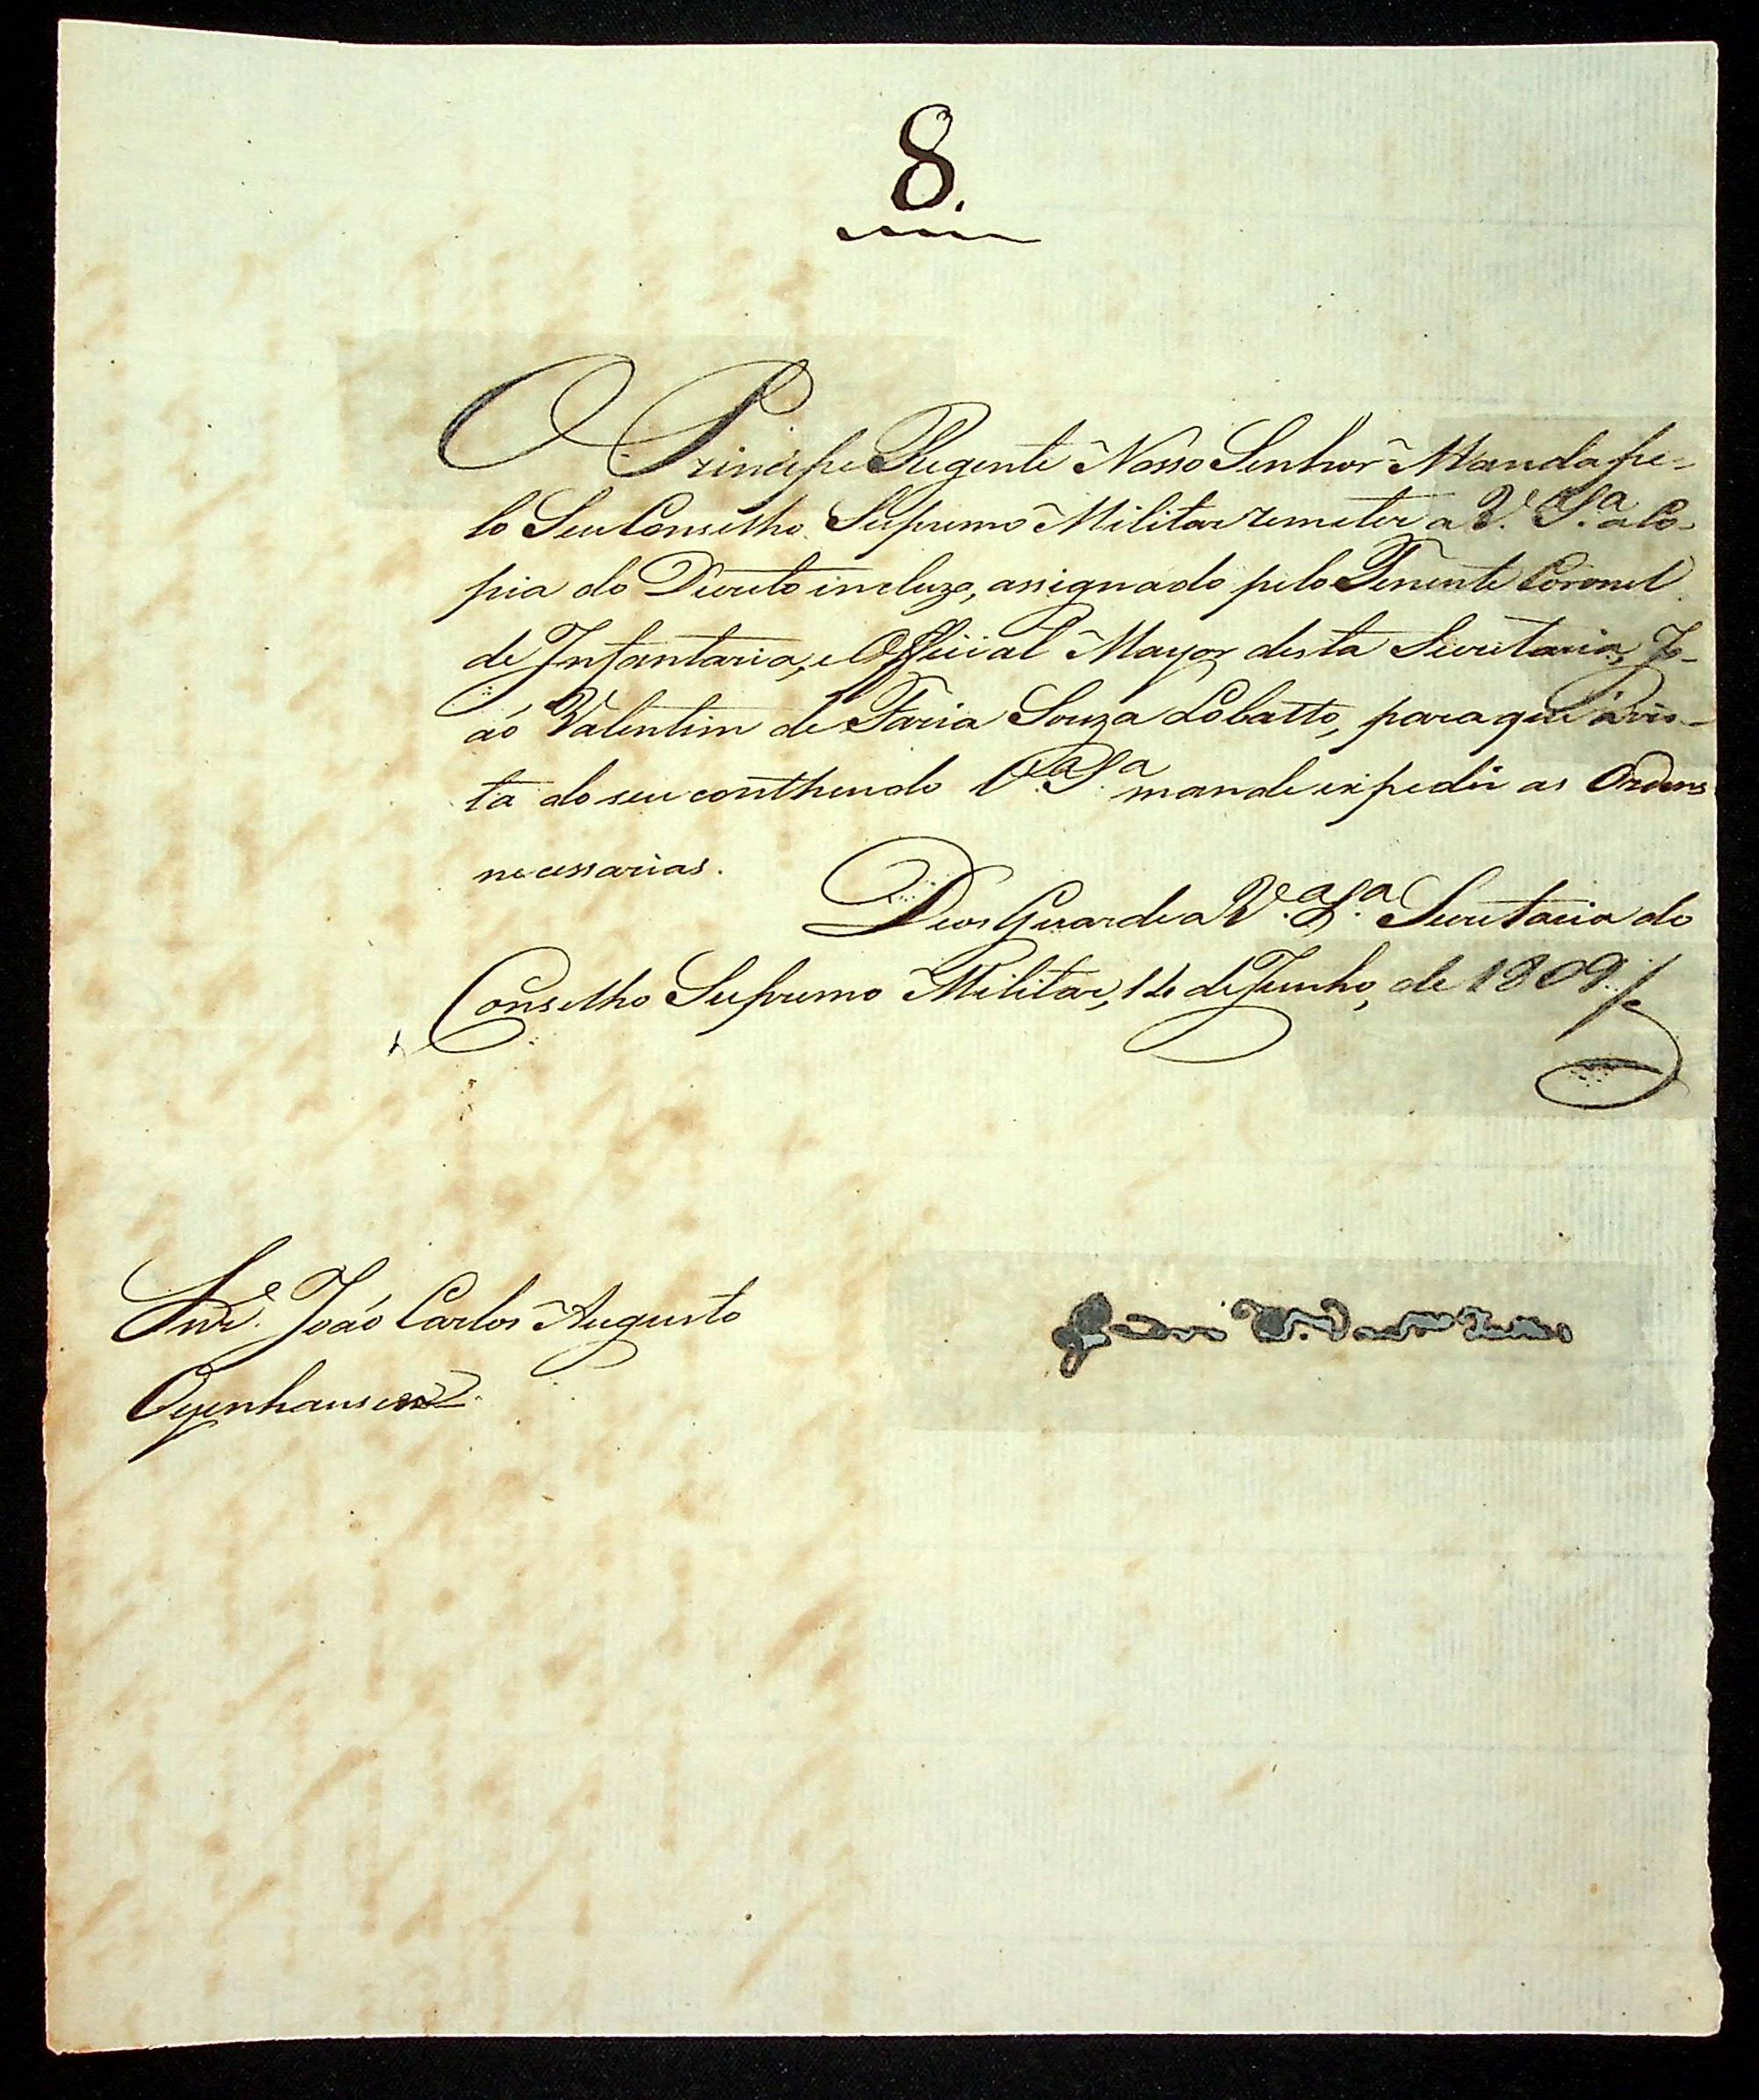 8.
O Principe Regente Nosso Senhor Manda pe-
lo Seu Conselho Supremo Militar remeter a V.ª S.ª a Co-
pia do Decreto incluzo, assignado pelo Tenente Coronel
de Infantaria, e Official Mayor desta Secretaria, Jo-
áo Valentim de Faria Souza Lobatto, para que á vis-
ta do seu conthendo V.ª S.ª mande expedir as Ordens
necessarias.
Deos Guarde a V.ª S.ª Secretaria do
Conselho Supremo Militar, 14 de Junho, de 1809.
Snr.e João Carlos Augusto
Oyenhausen